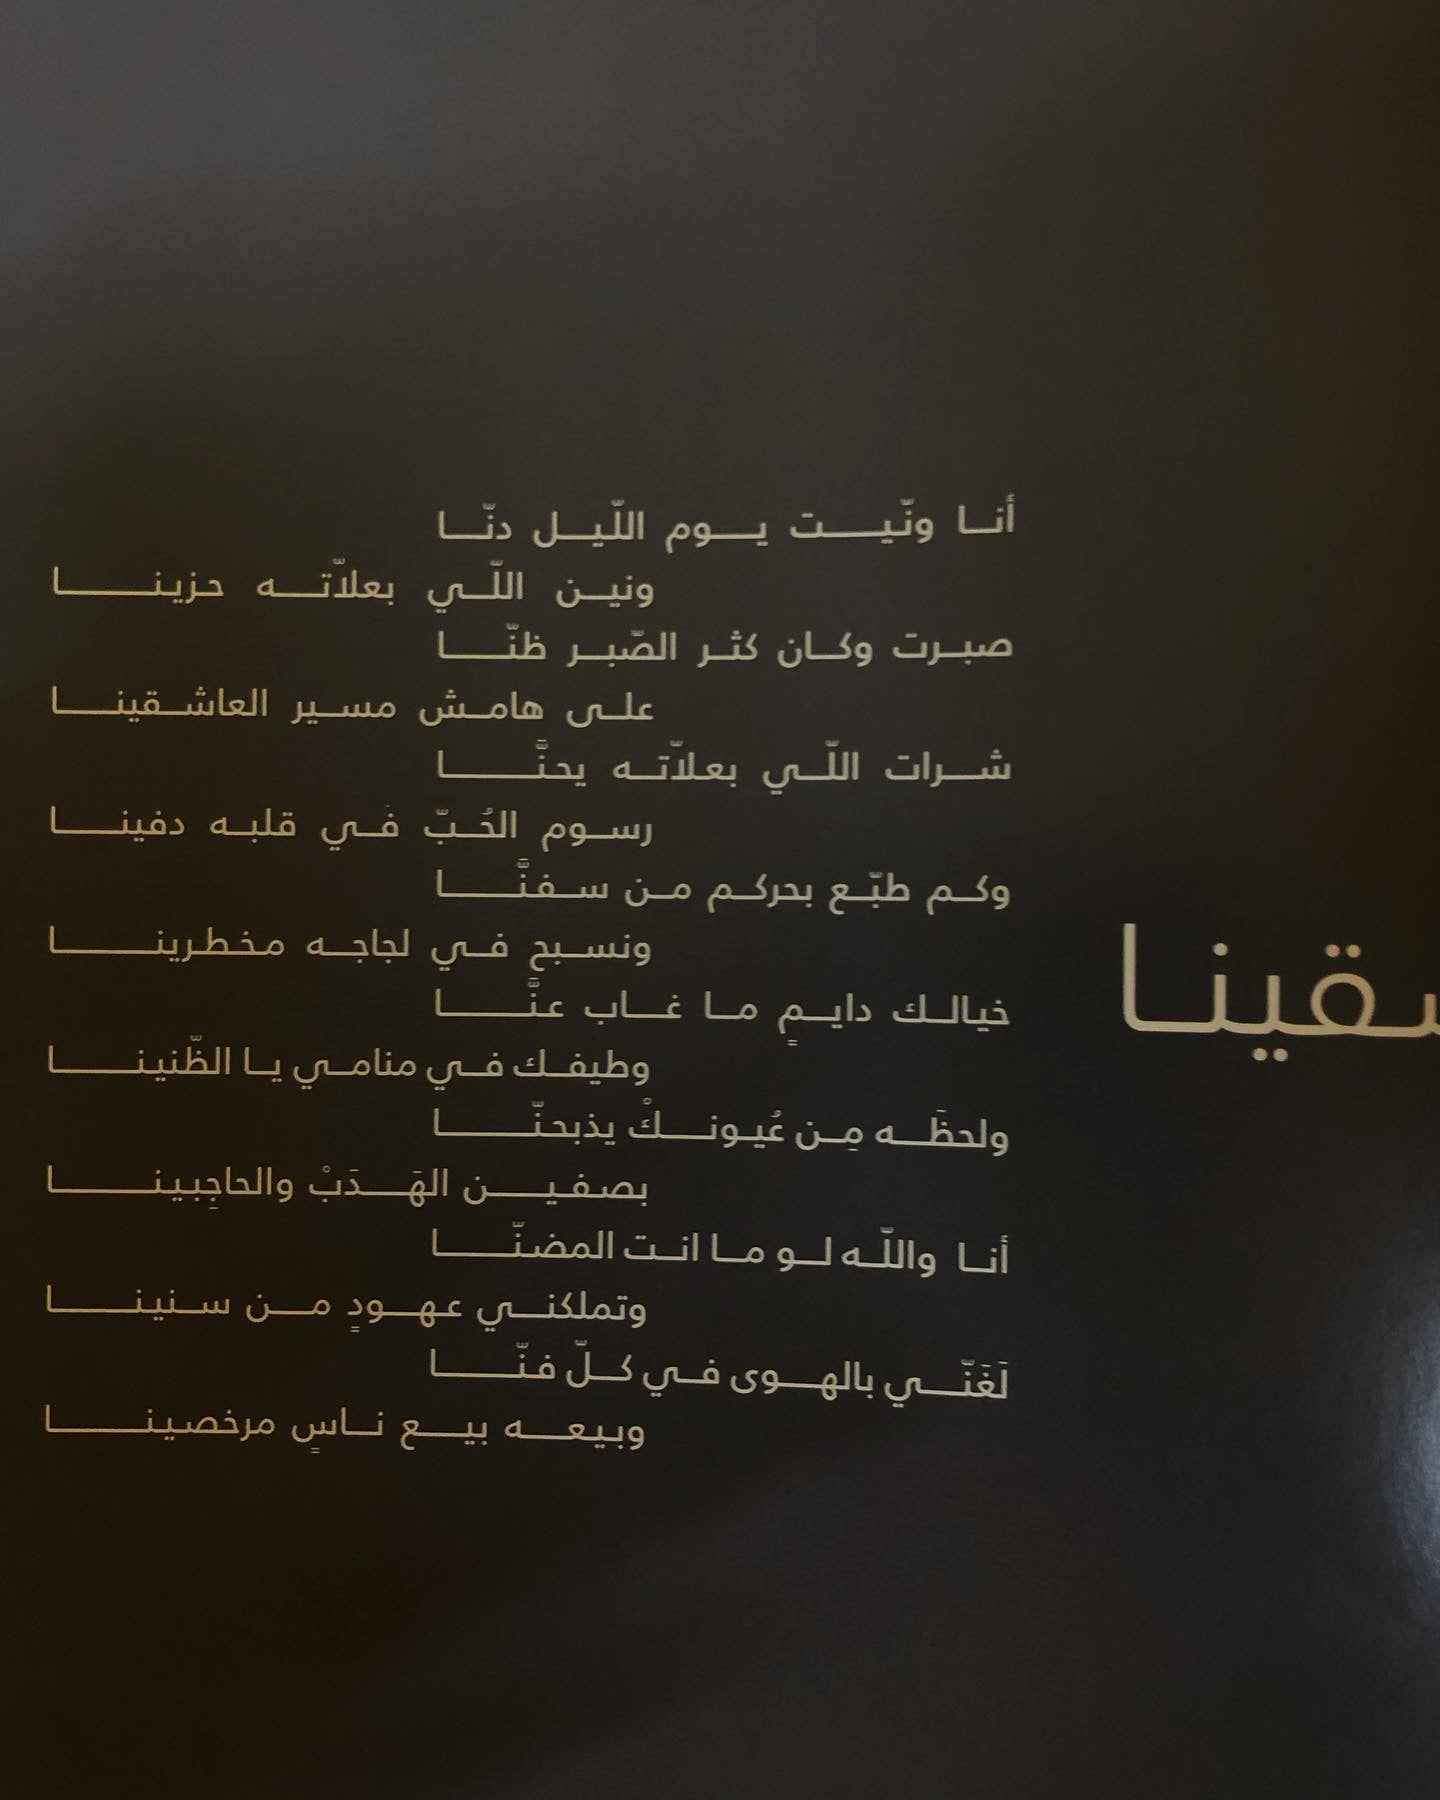 أنا ونّيت يوم اللّيل دنّا
ونين اللّي بعلاّته حزينا
صبرت وكان كثر الصّبر ظنّا
على هامش مسير العاشقينا
شرات اللّي بعلاّته يحنَّا
رسوم الحُبّ في قلبه دفينا
وكم طبّع بحركم من سفنَّا
ونسبح في لجاجه مخطرينا
خيالك دايمٍ ما غاب عنَّا
وطيفك في منامي يا الظّنينا
ولحظَه مِن عُيونكْ يذبحنّا
بصفين الهَدَبْ والحاجِبينا
أنا واللّه لو ما انت المضنّا
وتملكني عهودٍ من سنينا
لَغَنّي بالهوى في كلّ فنّا
وبيعه بيع ناسٍ مرخصينا